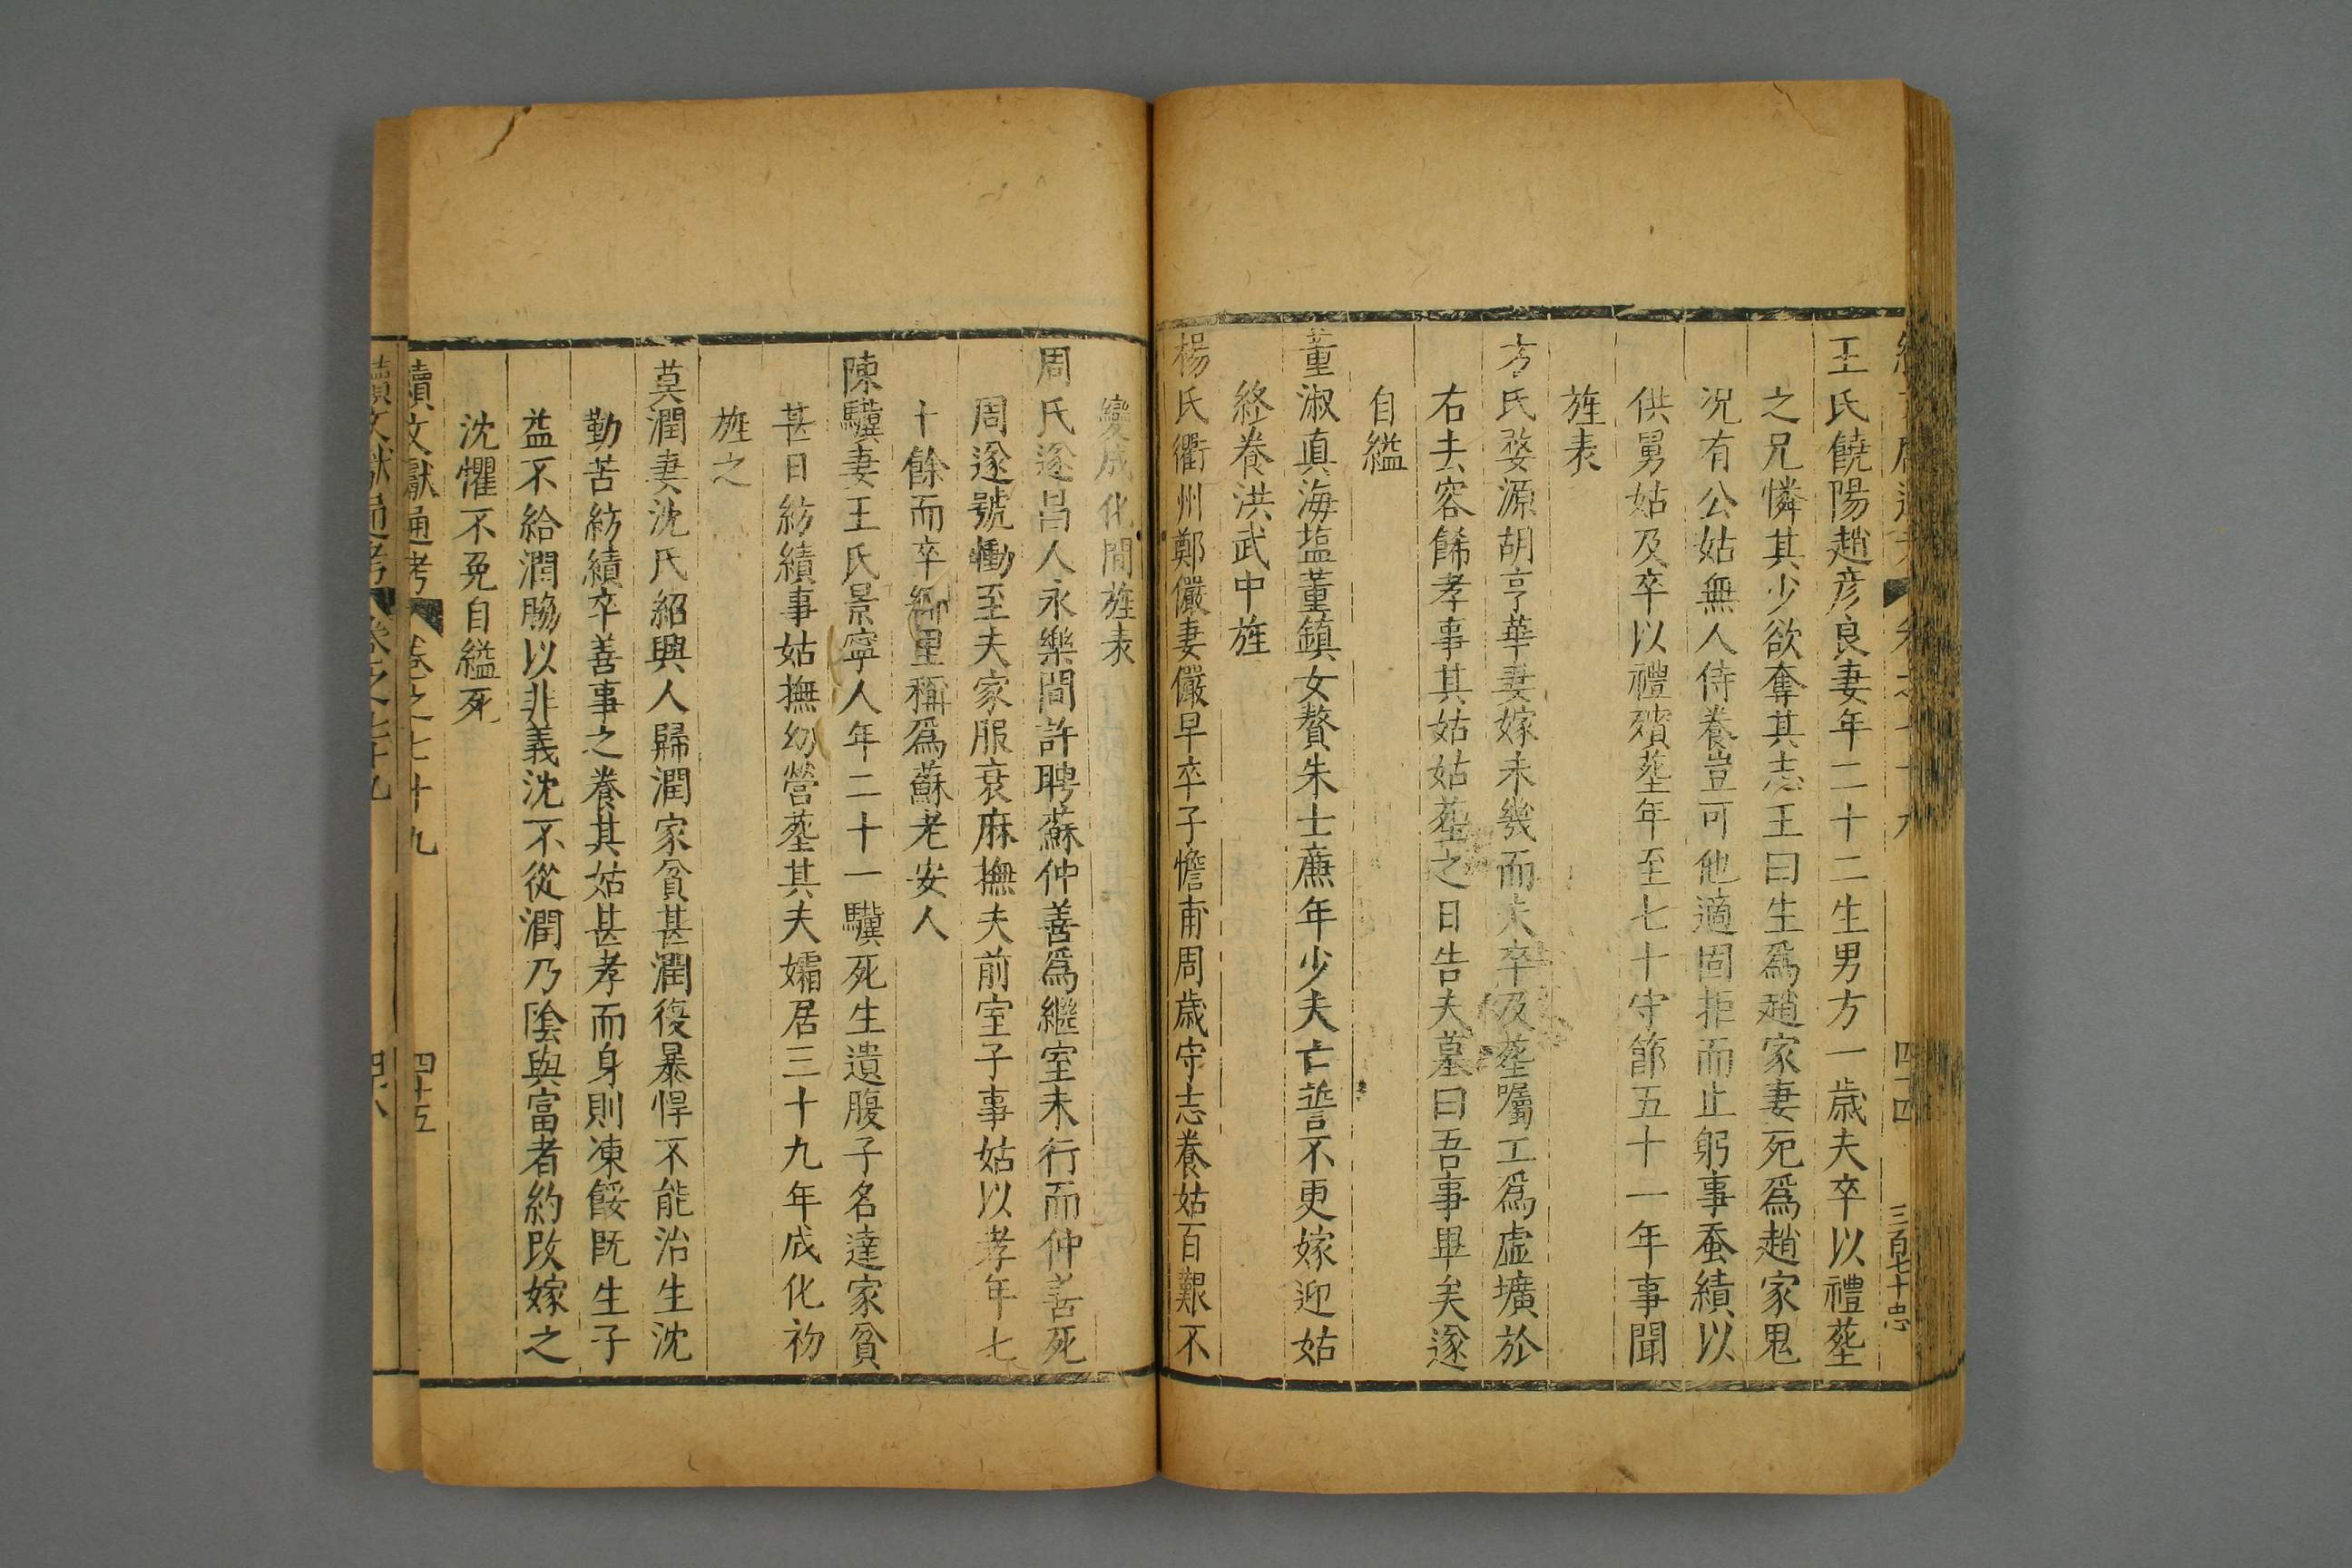 王氏饒陽趙彥良妻年二十二生男方一歲夫卒以禮塟
之兄憐其少欲奪其志王曰生爲趙家妻死爲趙家鬼
况有公姑無人侍養豈可他適固拒而止躬事蚕績以
供舅姑及卒以禮殯塟年至七十守節五十一年事聞
旌表
方氏婺源胡亨華妻嫁未幾而夫卒及塟囑工爲虛壙於
右去容餙孝事其姑姑塟之日告夫墓曰吾事畢矣遂
自縊
董淑真海塩董鎮女贅朱士廉年少夫亡誓不更嫁迎姑
終養洪武中旌
楊氏衢州鄭儼妻儼早卒子憺甫周歲守志養姑百艱不
變成化間旌表
周氏遂昌人永樂間許聘蘇仲善爲繼室未行而仲善死
周遂號慟至夫家服衰麻撫夫前室子事姑以孝年七
十餘而卒鄉里稱爲蘇老安人
陳驥妻王氏景寧人年二十一驥死生遺腹子名達家貧
甚日紡績事姑撫幼營塟其夫孀居三十九年成化初
旌之
莫潤妻沈氏紹興人歸潤家貧甚潤復暴悍不能治生沈
勤苦紡績卒善事之養其姑甚孝而身則凍餒旣生子
益不給潤脇以非義沈不從潤乃陰與富者約改嫁之
沈懼不免自縊死
續文獻通考 卷之七十九 四十五